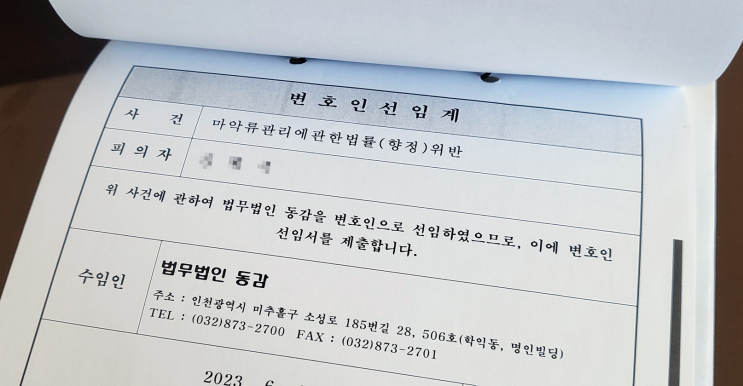 변 호 인 선 임 계
사 건 마약류관리에관한법률(향정)위반
피 의 자
위 사건에 관하여 법무법인 동감을 변호인으로 선임하였으므로, 이에 변호인
선임서를 제출합니다.
수임인
법무법인 동감
주소 : 인천광역시 미추홀구 소성로 185번길 28, 506호(학익동, 명인빌딩)
TEL : (032)873-2700 FAX : (032)873-2701
2023. 6.